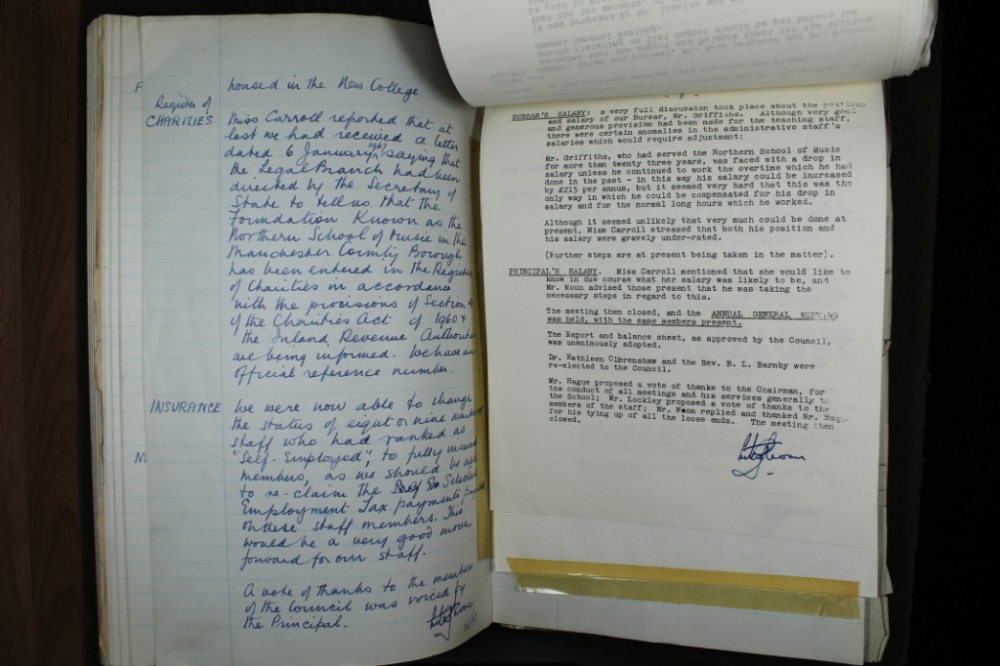 housed in the New College
Register of
CHARITIES
Miss Carroll reported that at
last we had received a letter
dated 6 January, 1967 saying that
the Legal Branch had been
directed by the Secretary of
State to tell us that the
Foundation Known as the
Northern School of Music in the
Manchester County Borough
has been entered in the Register
of Charities in accordance
with the provisions of Section 4
of the Charities Act of 1960 &
the Inland Revenue Authorities
are being informed. We have an
official reference number.
INSURANCE
We were now able to change
the status of eight or nine members
staff who had ranked as
"Self-Employed", to fully insured
members, as we should be able
to re-claim the Selective
Employment Tax payments
on these staff members. This
would be a very good move
forward for our staff.
A vote of thanks to the members
of the Council was voiced by
the Principal.
BURSAR'S SALARY: a very full discussion took place about the position
and salary of our Bursar, Mr. Griffiths. Although very good
and generous provision had been made for the teaching staff,
there were certain anomalies in the administrative staff's
salaries which would require adjustment:
Mr. Griffiths, who had served the Northern School of Music
for more than twenty three years, was faced with a drop in
salary unless he continued to work the overtime which he had
done in the past - in this way his salary could be increased
by £215 per annum, but it seemed very hard that this was the
only way in which he could be compensated for his drop in
salary and for the normal long hours which he worked.
Although it seemed unlikely that very much could be done at
present, Miss Carroll stressed that both his position and
his salary were gravely under-rated.
(Further steps are at present being taken in the matter).
PRINCIPAL'S SALARY. Miss Carroll mentioned that she would like to
know in due course what her salary was likely to be, and
Mr. Moon advised those present that he was taking the
necessary steps in regard to this.
The meeting then closed, and the ANNUAL GENERAL MEETING
was held, with the same members present.
The Report and balance sheet, as approved by the Council,
was unaniously adopted.
Dr. Kathleen Ollerenshaw and the Rev. B. L. Barnby were
re-elected to the Council.
Mr. Hague proposed a vote of thanks to the Chairman, for
the conduct of all meetings and his services generally to
the School; Mr. Lockley proposed a vote of thanks to the
members of the staff; Mr. Moon replied and thanked Mr. Hague
for his tying up of all the loose ends. The meeting then
closed.